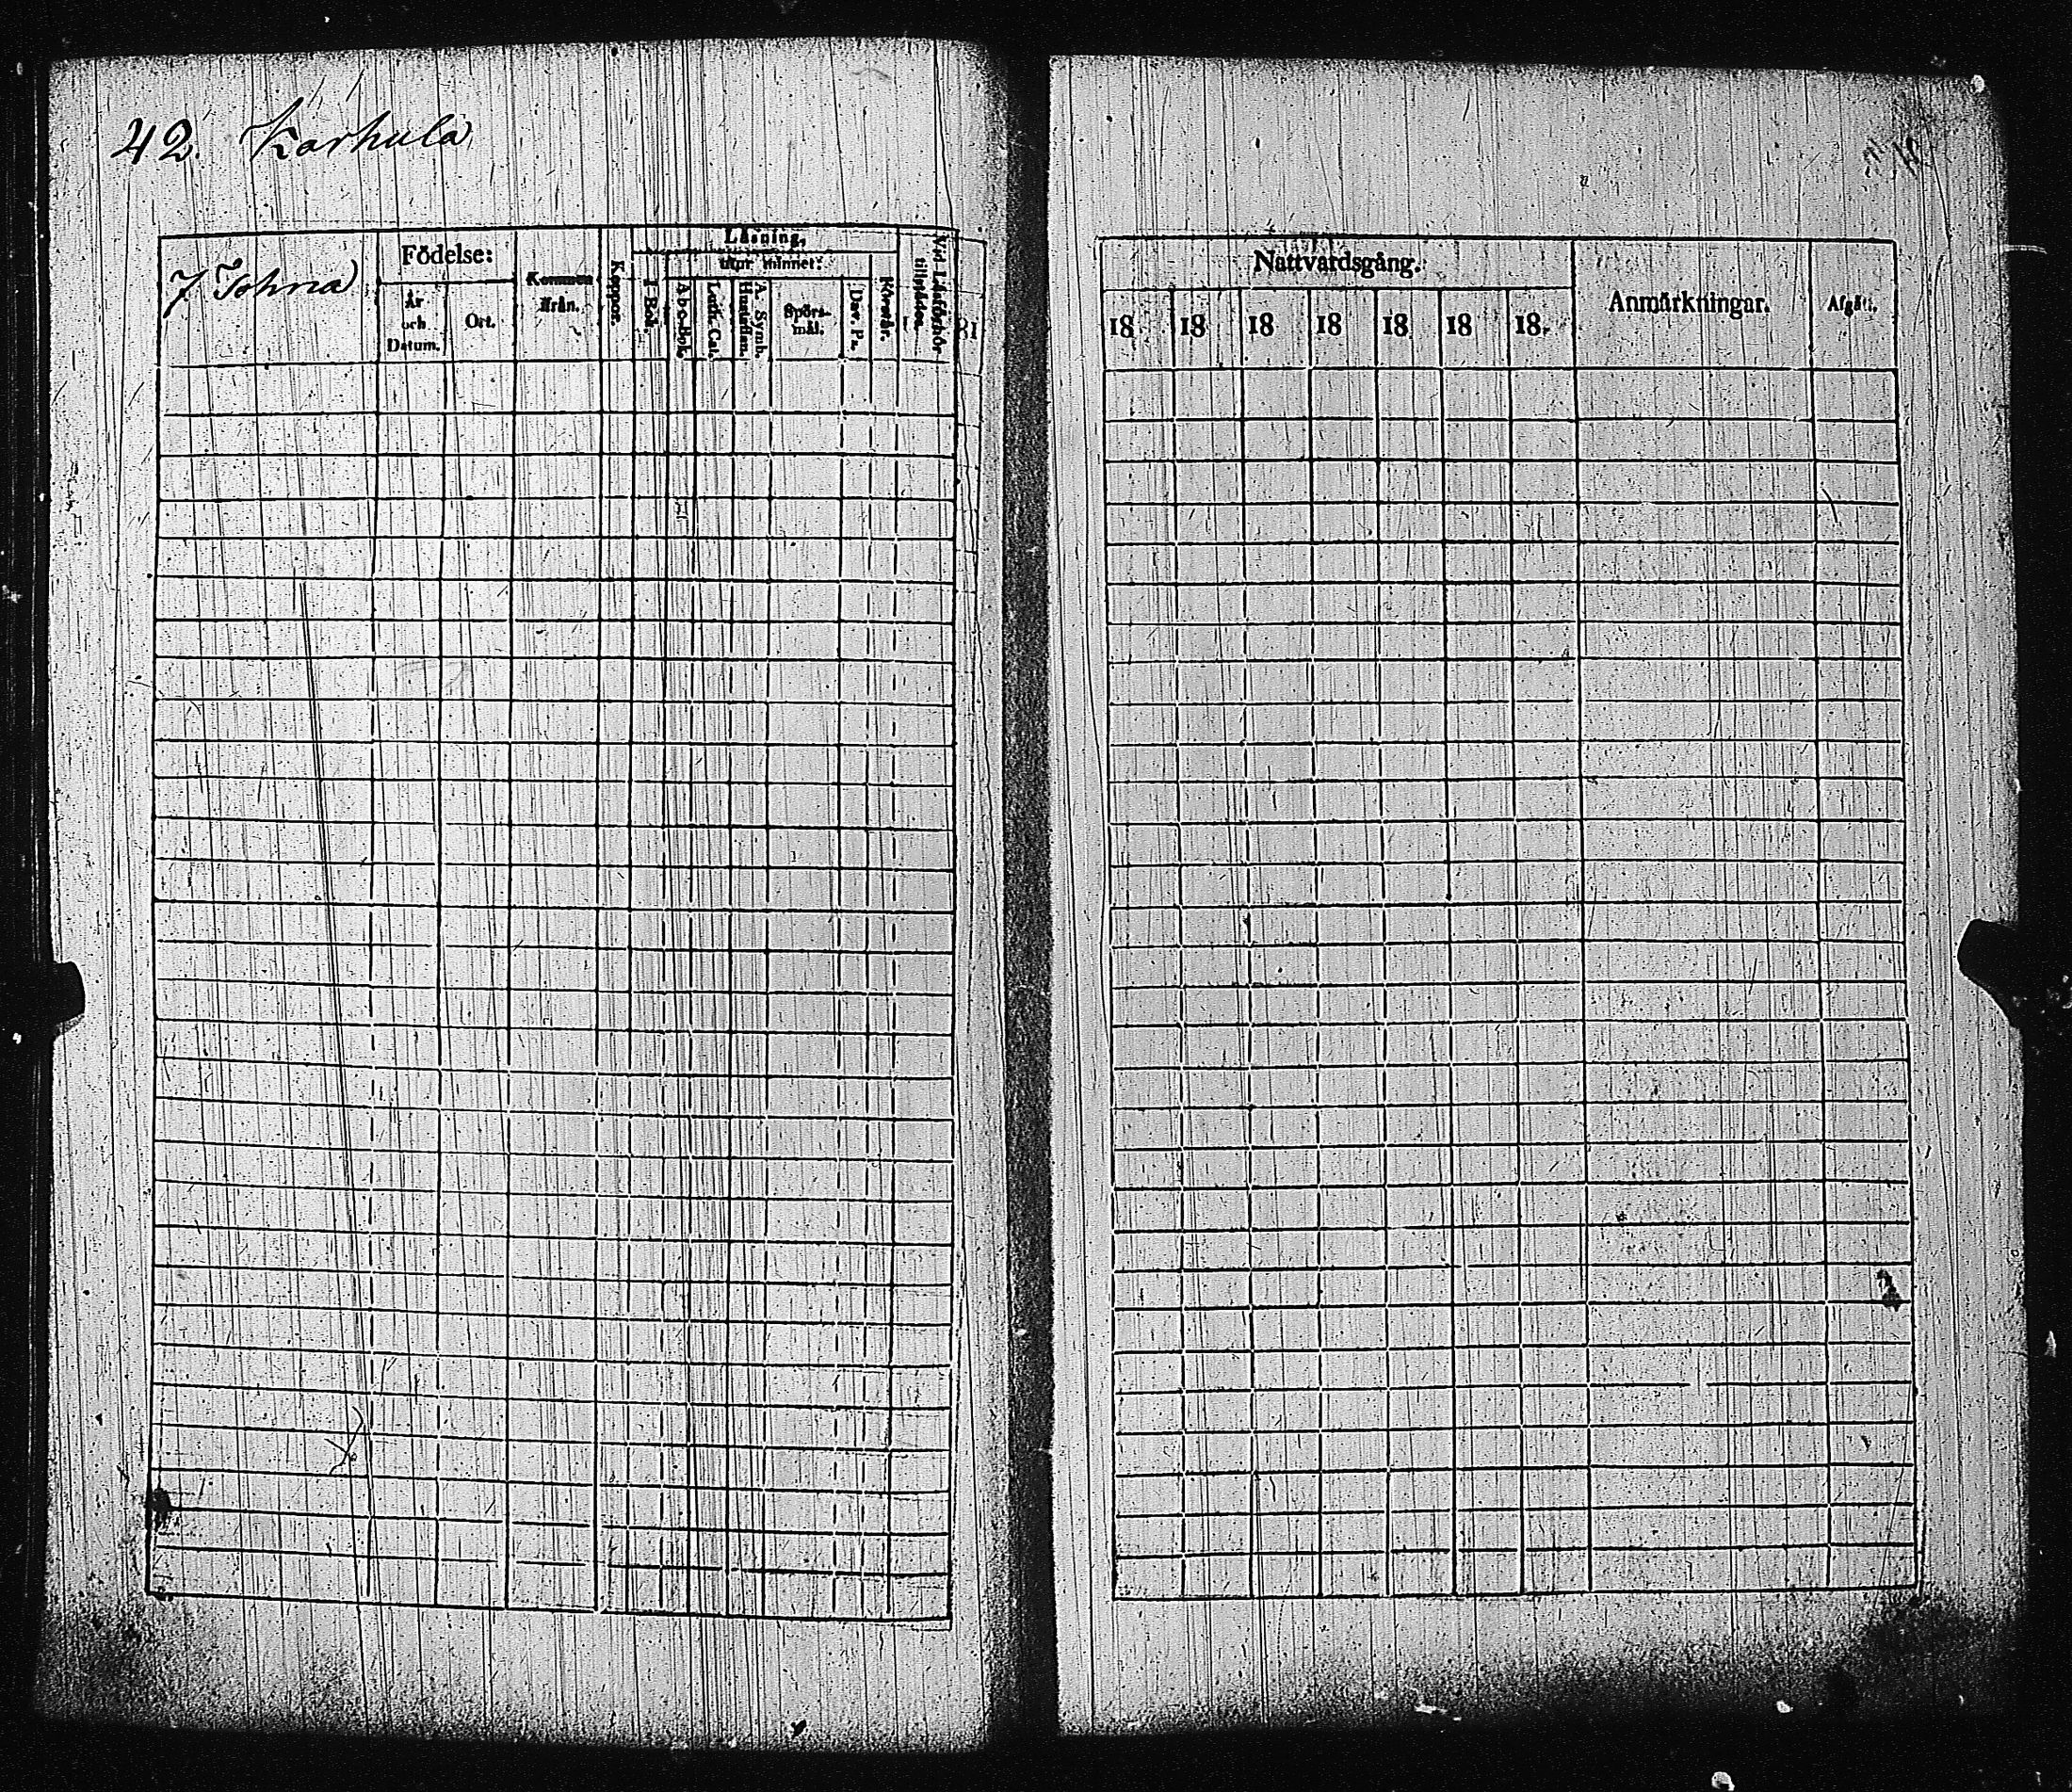 42. Karhula
7 Tohna
Födelse:
År
och
Datum.
Ort.
Kommen
ifrån.
Koppor.
Läsning,
utur minnet:
I Bok.
A b c-Bok.
Luth. Cat.
A. Symb.
Hustaflan.
Spörs-
mål.
Dav. Ps.
Förstår.
Vid Läsförhör
tillstädes.
Nattvardsgång.
18 18 18 18 18 18 18
Anmärkningar.
Afgått.